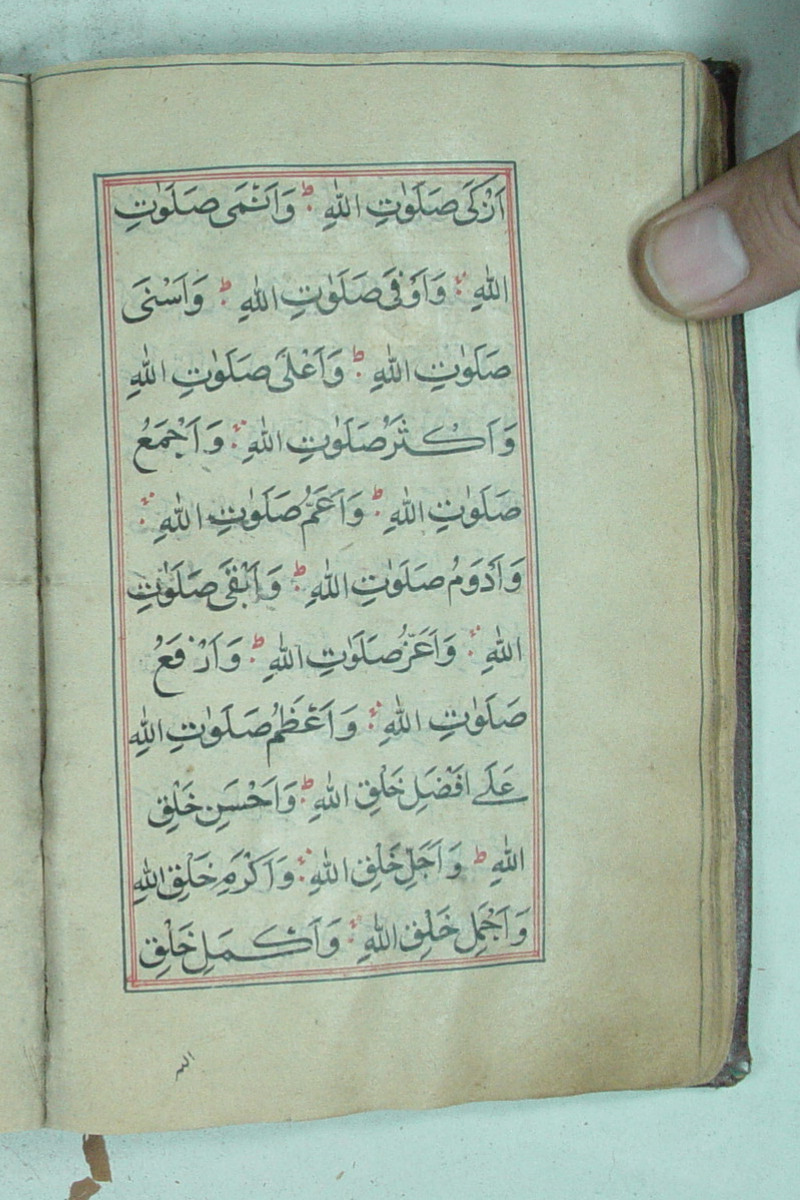 اَزْكَى صَلَوٰتِ اللهِ ؕ وَاَنْمَى صَلَوٰتِ
اللهِ ۛ وَاَوْفَى صَلَوٰتِ اللهِ ؕ وَاَسْنَى
صَلَوٰتِ اللهِ ؕ وَاَعْلَى صَلَوٰتِ اللهِ
وَاَكْثَرُ صَلَوٰتِ اللهِ ۛ وَاَجْمَعُ
صَلَوٰتِ اللهِ ؕ وَاَعَمُّ صَلَوٰتِ اللهِ ۛ
وَاَدْوَمُ صَلَوٰتِ اللهِ ؕ وَاَبْقَى صَلَوٰتِ
اللهِ ۛ وَاَعَزُّ صَلَوٰتِ اللهِ ؕ وَاَرْفَعُ
صَلَوٰتِ اللهِ ۛ وَاَعْظَمُ صَلَوٰتِ اللهِ
عَلَے اَفْضَلِ خَلْقِ اللهِ ؕ وَاَحْسَنِ خَلْقِ
اللهِ ؕ وَاَجَلِّ خَلْقِ اللهِ ۛ وَاَكْرَمِ خَلْقِ اللهِ
وَاَجْمَلِ خَلْقِ اللهِ ۛ وَاَكْمَلِ خَلْقِ
الله